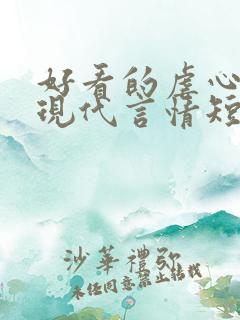 好看的虐心
現代言情短
沙華禮弥
未經同意禁止轉載